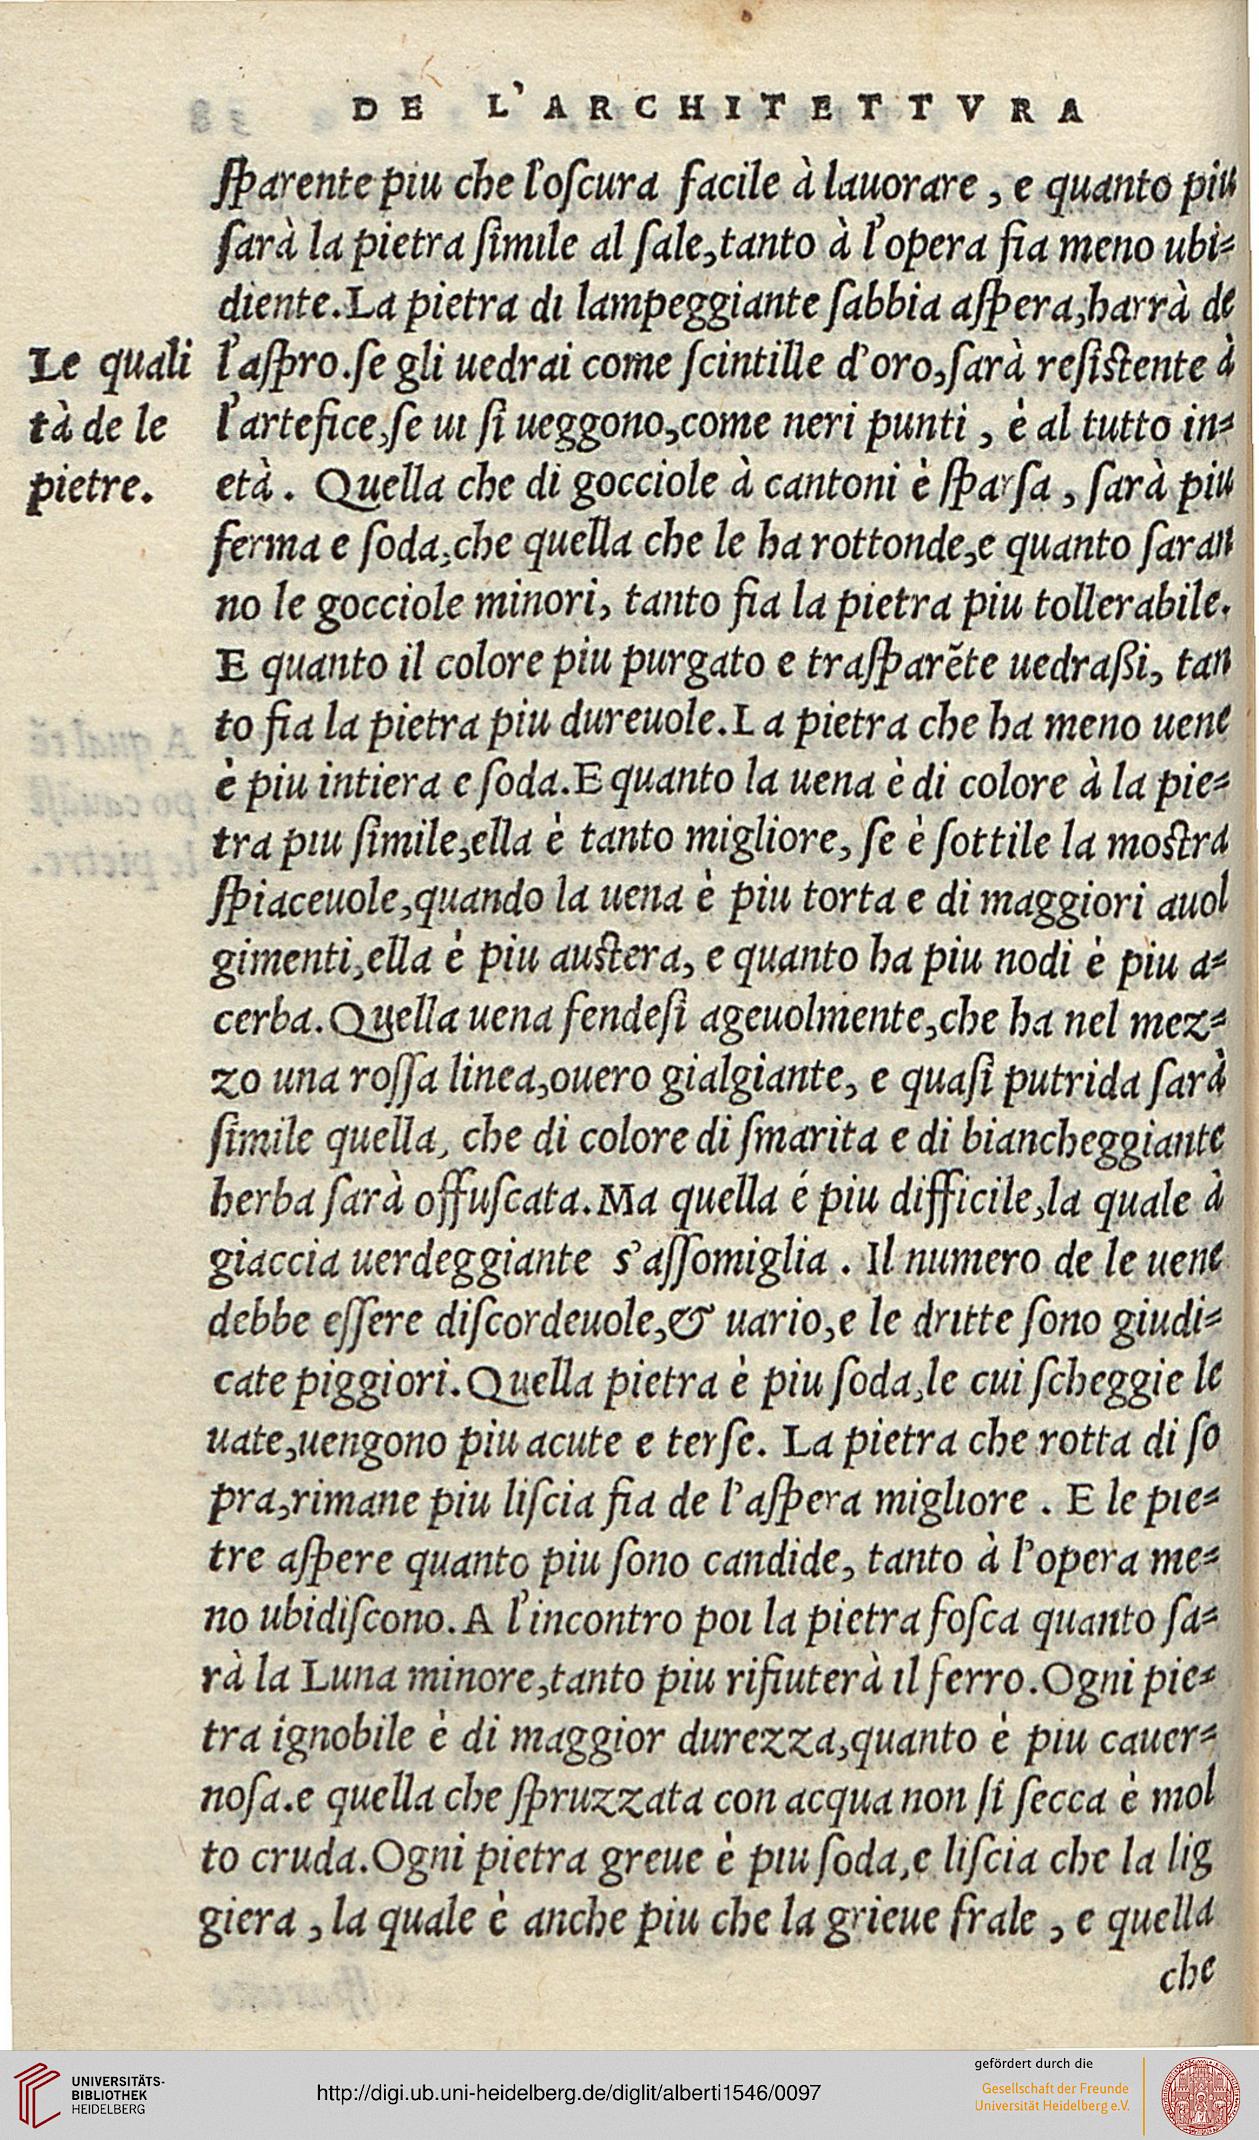 DE L'ARCHITETTVRA
ſparente piu che l'oſcura facile à lauorare, e quanto piu
ſarà la pietra ſimile al ſale, tanto à l'opera fia meno ubi=
diente. La pietra di lampeggiante ſabbia aſpera, harrà de
l'aſpro. ſe gli uedrai come ſcintille d'oro, ſarà reſiſtente à
l'artefice, ſe ui ſi ueggono, come neri punti, è al tutto in=
età. Quella che di gocciole à cantoni è ſparſa, ſarà piu
ferma e ſoda, che quella che le ha rottonde, e quanto ſaran
no le gocciole minori, tanto fia la pietra piu tollerabile.
E quanto il colore piu purgato e traſparẽte uedraßi, tan
to fia la pietra piu dureuole. La pietra che ha meno uene
è piu intiera e ſoda. E quanto la uena è di colore à la pie=
tra piu ſimile, ella è tanto migliore, ſe è ſottile la moſtra
ſpiaceuole, quando la uena è piu torta e di maggiori auol
gimenti, ella è piu auſtera, e quanto ha piu nodi è piu a=
cerba. Quella uena fendeſi ageuolmente, che ha nel mez=
zo una roſſa linea, ouero gialgiante, e quaſi putrida ſarà
ſimile quella, che di colore di ſmarita e di biancheggiante
herba ſarà offuſcata. Ma quella é piu difficile, la quale à
giaccia uerdeggiante s'aſſomiglia. Il numero de le uene
debbe eſſere diſcordeuole, & uario, e le dritte ſono giudi=
cate piggiori. Quella pietra è piu ſoda, le cui ſcheggie le
uate, uengono piu acute e terſe. La pietra che rotta di ſo
pra, rimane piu liſcia fia de l'aſpera migliore. E le pie=
tre aſpere quanto piu ſono candide, tanto à l'opera me=
no ubidiſcono. A l'incontro poi la pietra foſca quanto ſa=
rà la Luna minore, tanto piu rifiuterà il ferro. Ogni pie=
tra ignobile è di maggior durezza, quanto è piu cauer=
noſa. e quella che ſpruzzata con acqua non ſi ſecca è mol
to cruda. Ogni pietra greue è piu ſoda, e liſcia che la lig
giera, la quale è anche piu che la grieue frale, e quella
che
Le quali
tà de le
pietre.
UNIVERSITÄTS-
BIBLIOTHEK
HEIDELBERG
http://digi.ub.uni-heidelberg.de/diglit/alberti1546/0097
gefördert durch die
Gesellschaft der Freunde
Universität Heidelberg e.V.